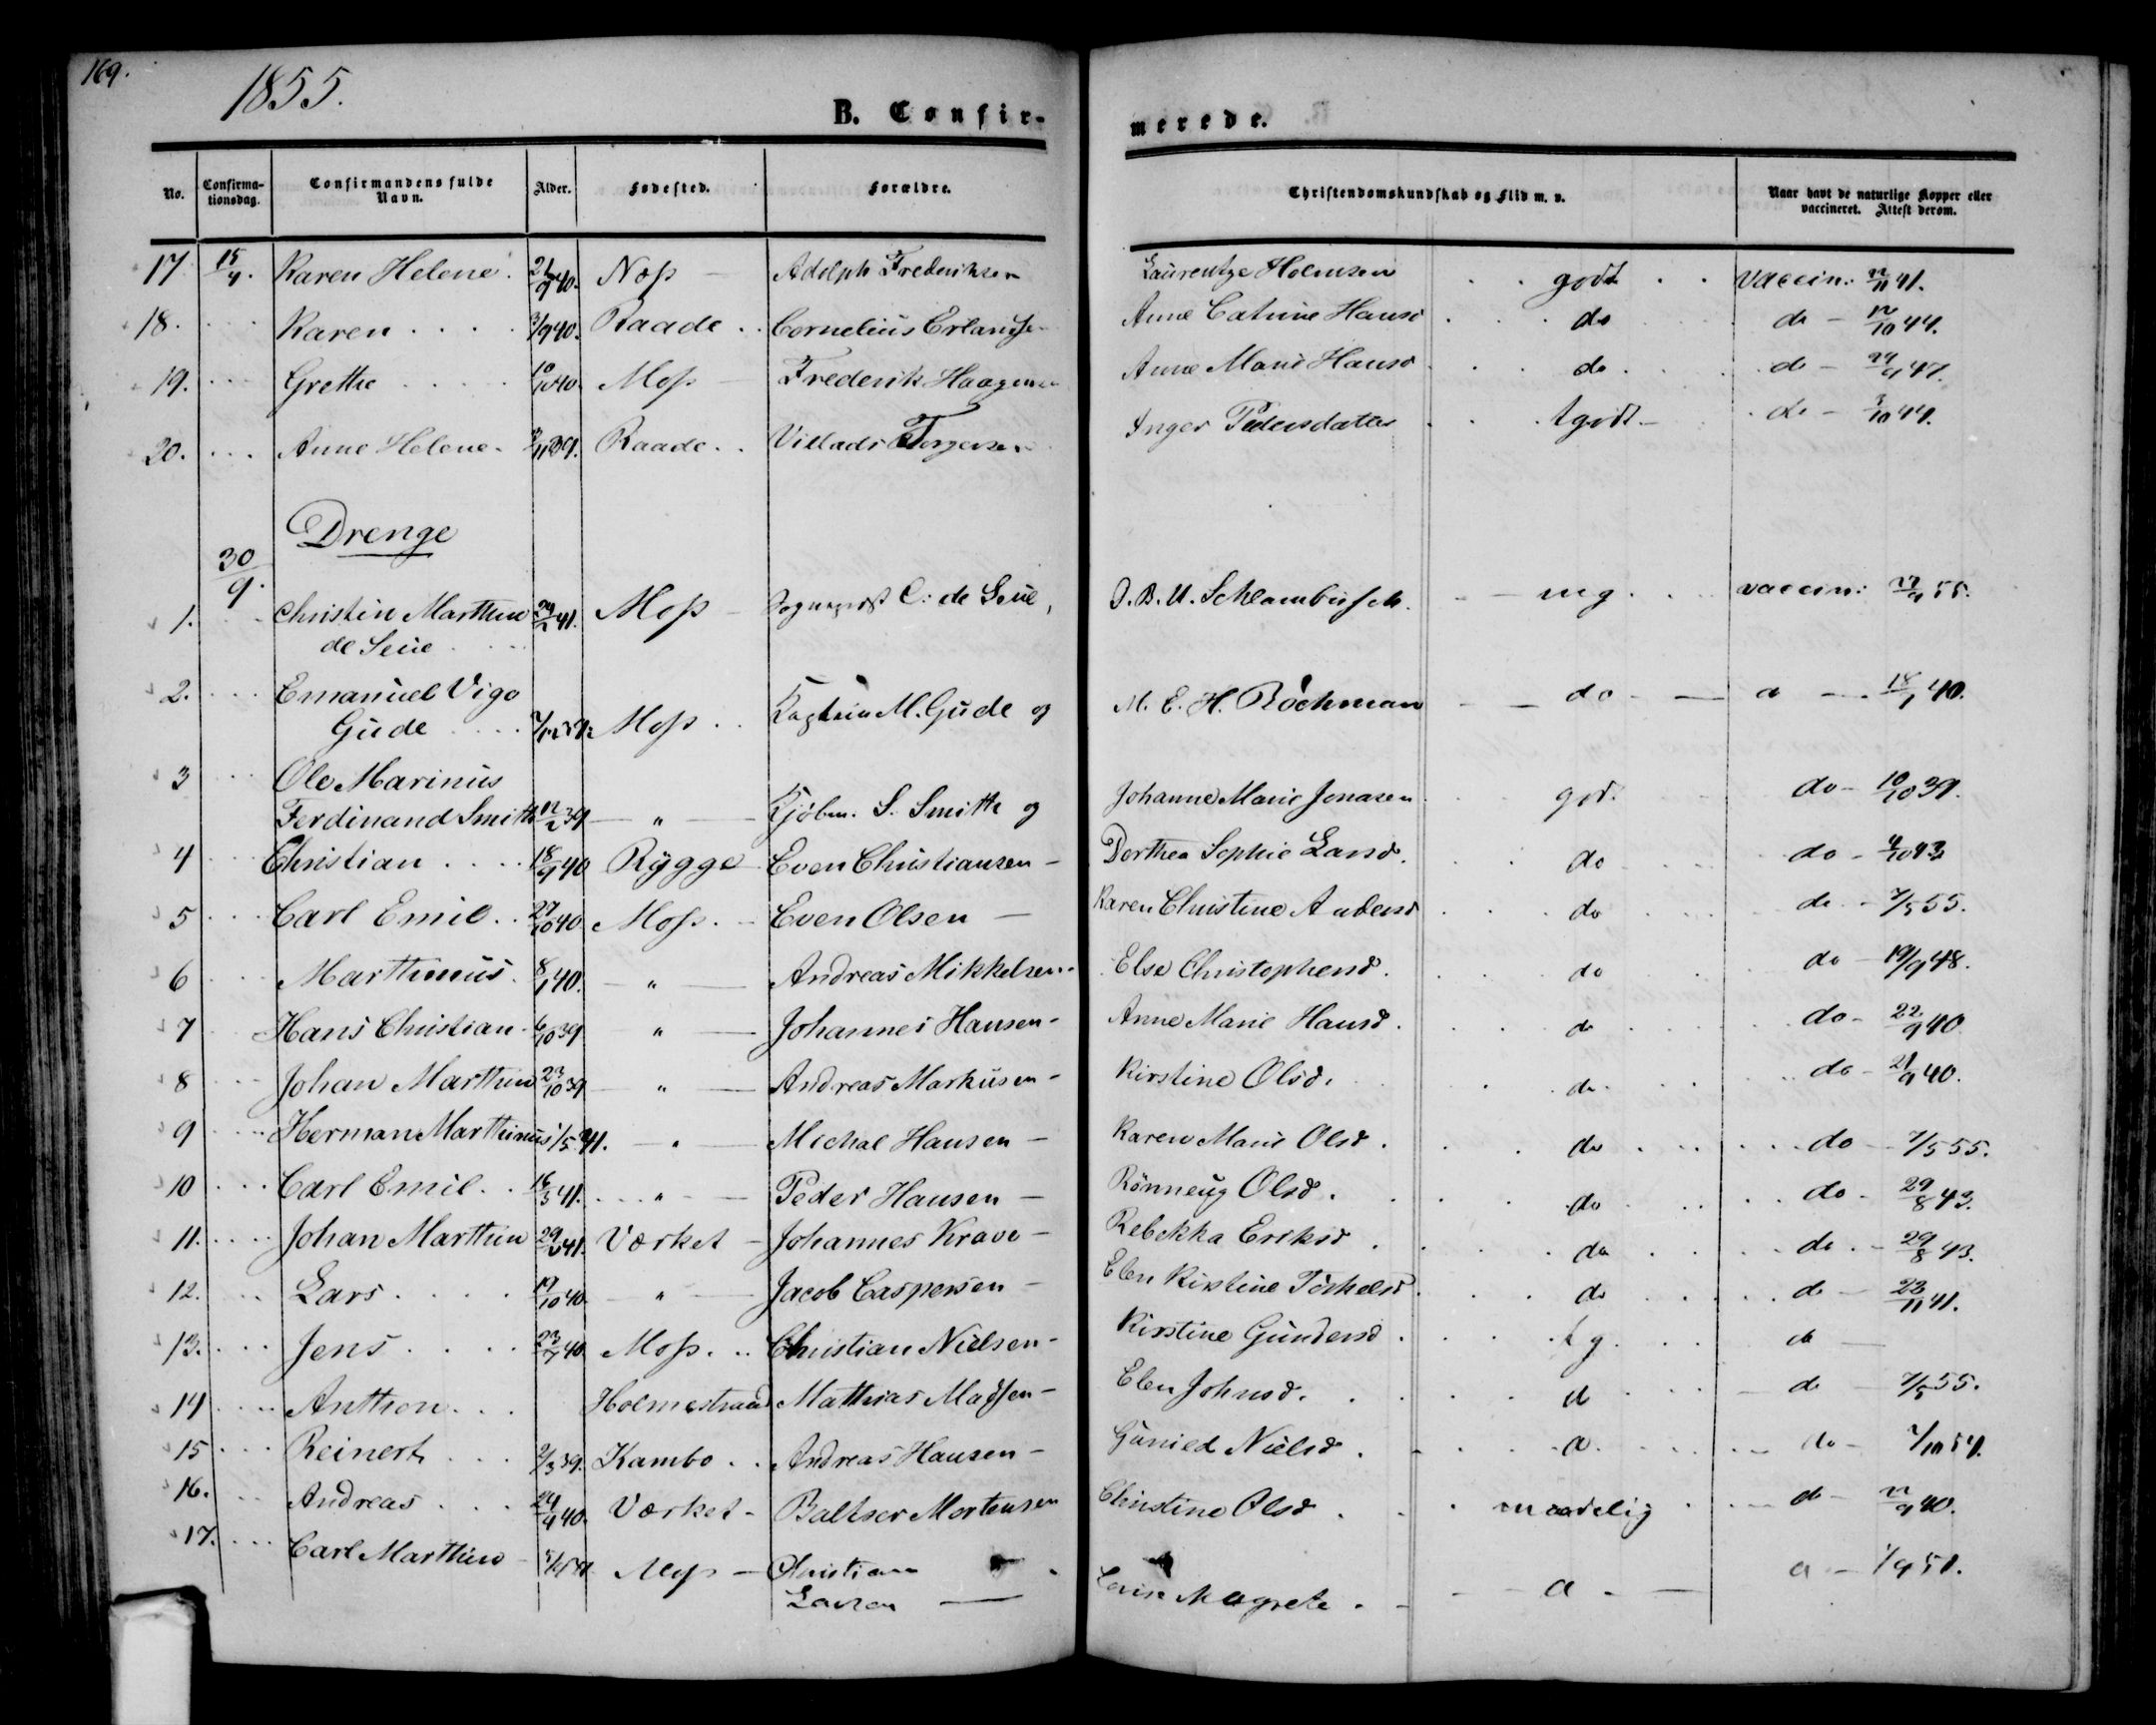 169.
1855.
B. Confir-
merede.
No. Confirma-tionsdag. Confirmandens fulde Navn. Alder. Fødested. Forældre. Christendomskundskab og Flid m. v. Naar havt de naturlige Kopper eller vaccineret. Attest derom.
17 15/4. Karen Helene. 21/9 40. Næss Adolph Frederiksen Laurentze Holmsen godt vaccin: 41.
18. Karen 3/9 40. Raade Cornelius Erlandsen Anne Catrine Hansd do do 12/10 44.
19. Grethe 40. Moss Frederik Haagensen Anne Marie Hansd do do 47.
20. Anne Helene 39. Raade Villads Torgersen Inger Pedersdatter tgodt do 3/10 44.
Drenge
30/9.
1. Christin Marthin 41. Moss Sogneprest C: de Seue, J. B. U. Schlambusch mg. vaccin: 55.
de Seue
2. Emanuel Vigo
Gude Moss Kaptein M. Gude og M. E. H. Bøchman do 18/1 40.
3 Ole Marinus
Ferdinand Smith 12/2 39 " Kjøbm. S. Smith og Johanne Marie Jonasen god. do 10/10 39.
4 Christian 18/9 40 Rygge Even Christiansen Dorthea Sophie Larsd. do do 4/10 43
5 Carl Emil 27/10 40 Moss Even Olsen Karen Christine Andersd do do 7/5 55.
6 Marthinius 8/1 40. " Andreas Mikkelsen Else Christophersd. do do 19/9 48.
7 Hans Christian 6/10 39 " Johannes Hansen Anne Marie Hansd. do do 22/9 40
8 Johan Marthin 23/10 39 " Andreas Markusen Kirstine Olsd. do do 21/9 40.
9 Herman Marthinus 1/5 41. " Michal Hansen Karen Marie Olsd. do do 7/5 55.
10 Carl Emil 16/3 41. " Peder Hansen Rønneug Olsd. do do 29/8 43.
11. Johan Marthin 41. Værket Johannes Krave Rebekka Eriksd do do 29/8 43.
12. Lars 19/10 40. " Jacob Caspersen Elen Kirstine Torkelsd. do do 23/11 41.
13. Jens 23/7 40 Moss Christian Nielsen Kirstine Gundersd. tg. do
14 Anthon Holmestrand Mathias Madsen Elen Johnsd. do do 7/5 55.
15 Reinert 2/3 39. Kambo Andreas Hansen Gunild Nielsd. do
16. Andreas 24/4 40. Værket Baltser Mortensen Christine Olsd maadelig do 40.
17. Carl Marthin Moss Christian
Larsen Margrete 1/9 51.